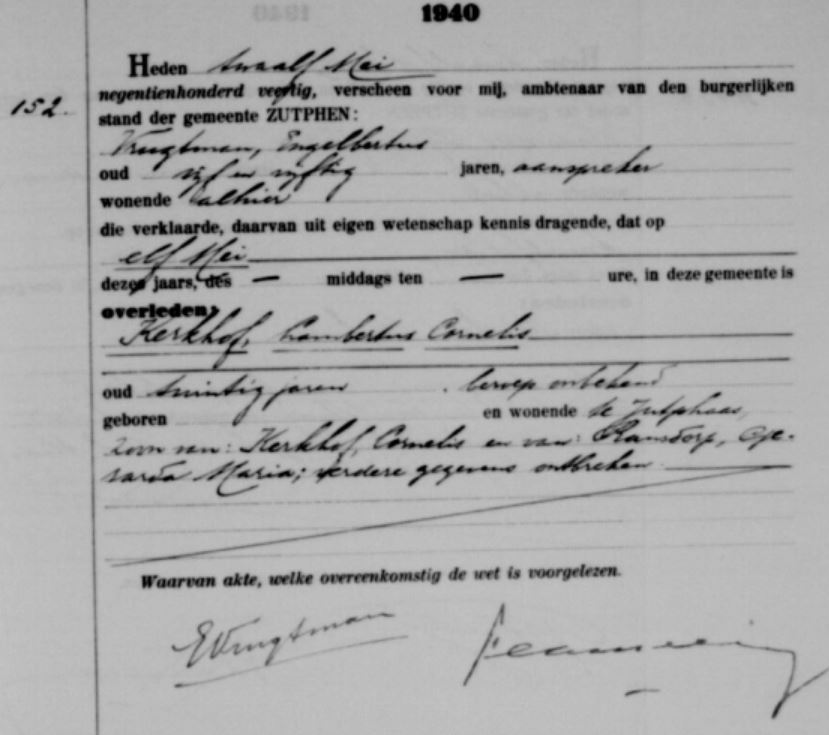 1940
Heden twaalf Mei
152.
negentienhonderd veertig, verscheen voor mij, ambtenaar van den burgerlijken
stand der gemeente ZUTPHEN:
Vrugtman, Engelbertus
oud vijf en vijftig jaren, aanspreker
wonende alhier
die verklaarde, daarvan uit eigen wetenschap kennis dragende, dat op
elf Mei
dezes jaars, des — middags ten — ure, in deze gemeente is
overleden:
Kerkhof, Lambertus Cornelis
oud twintig jaren . beroep onbekend
geboren en wonende te Jutphaas,
zoon van: Kerkhof, Cornelis en van: Ge-
rarda Maria; verdere gegevens ontbreken.
Waarvan akte, welke overeenkomstig de wet is voorgelezen.
EVrugtman